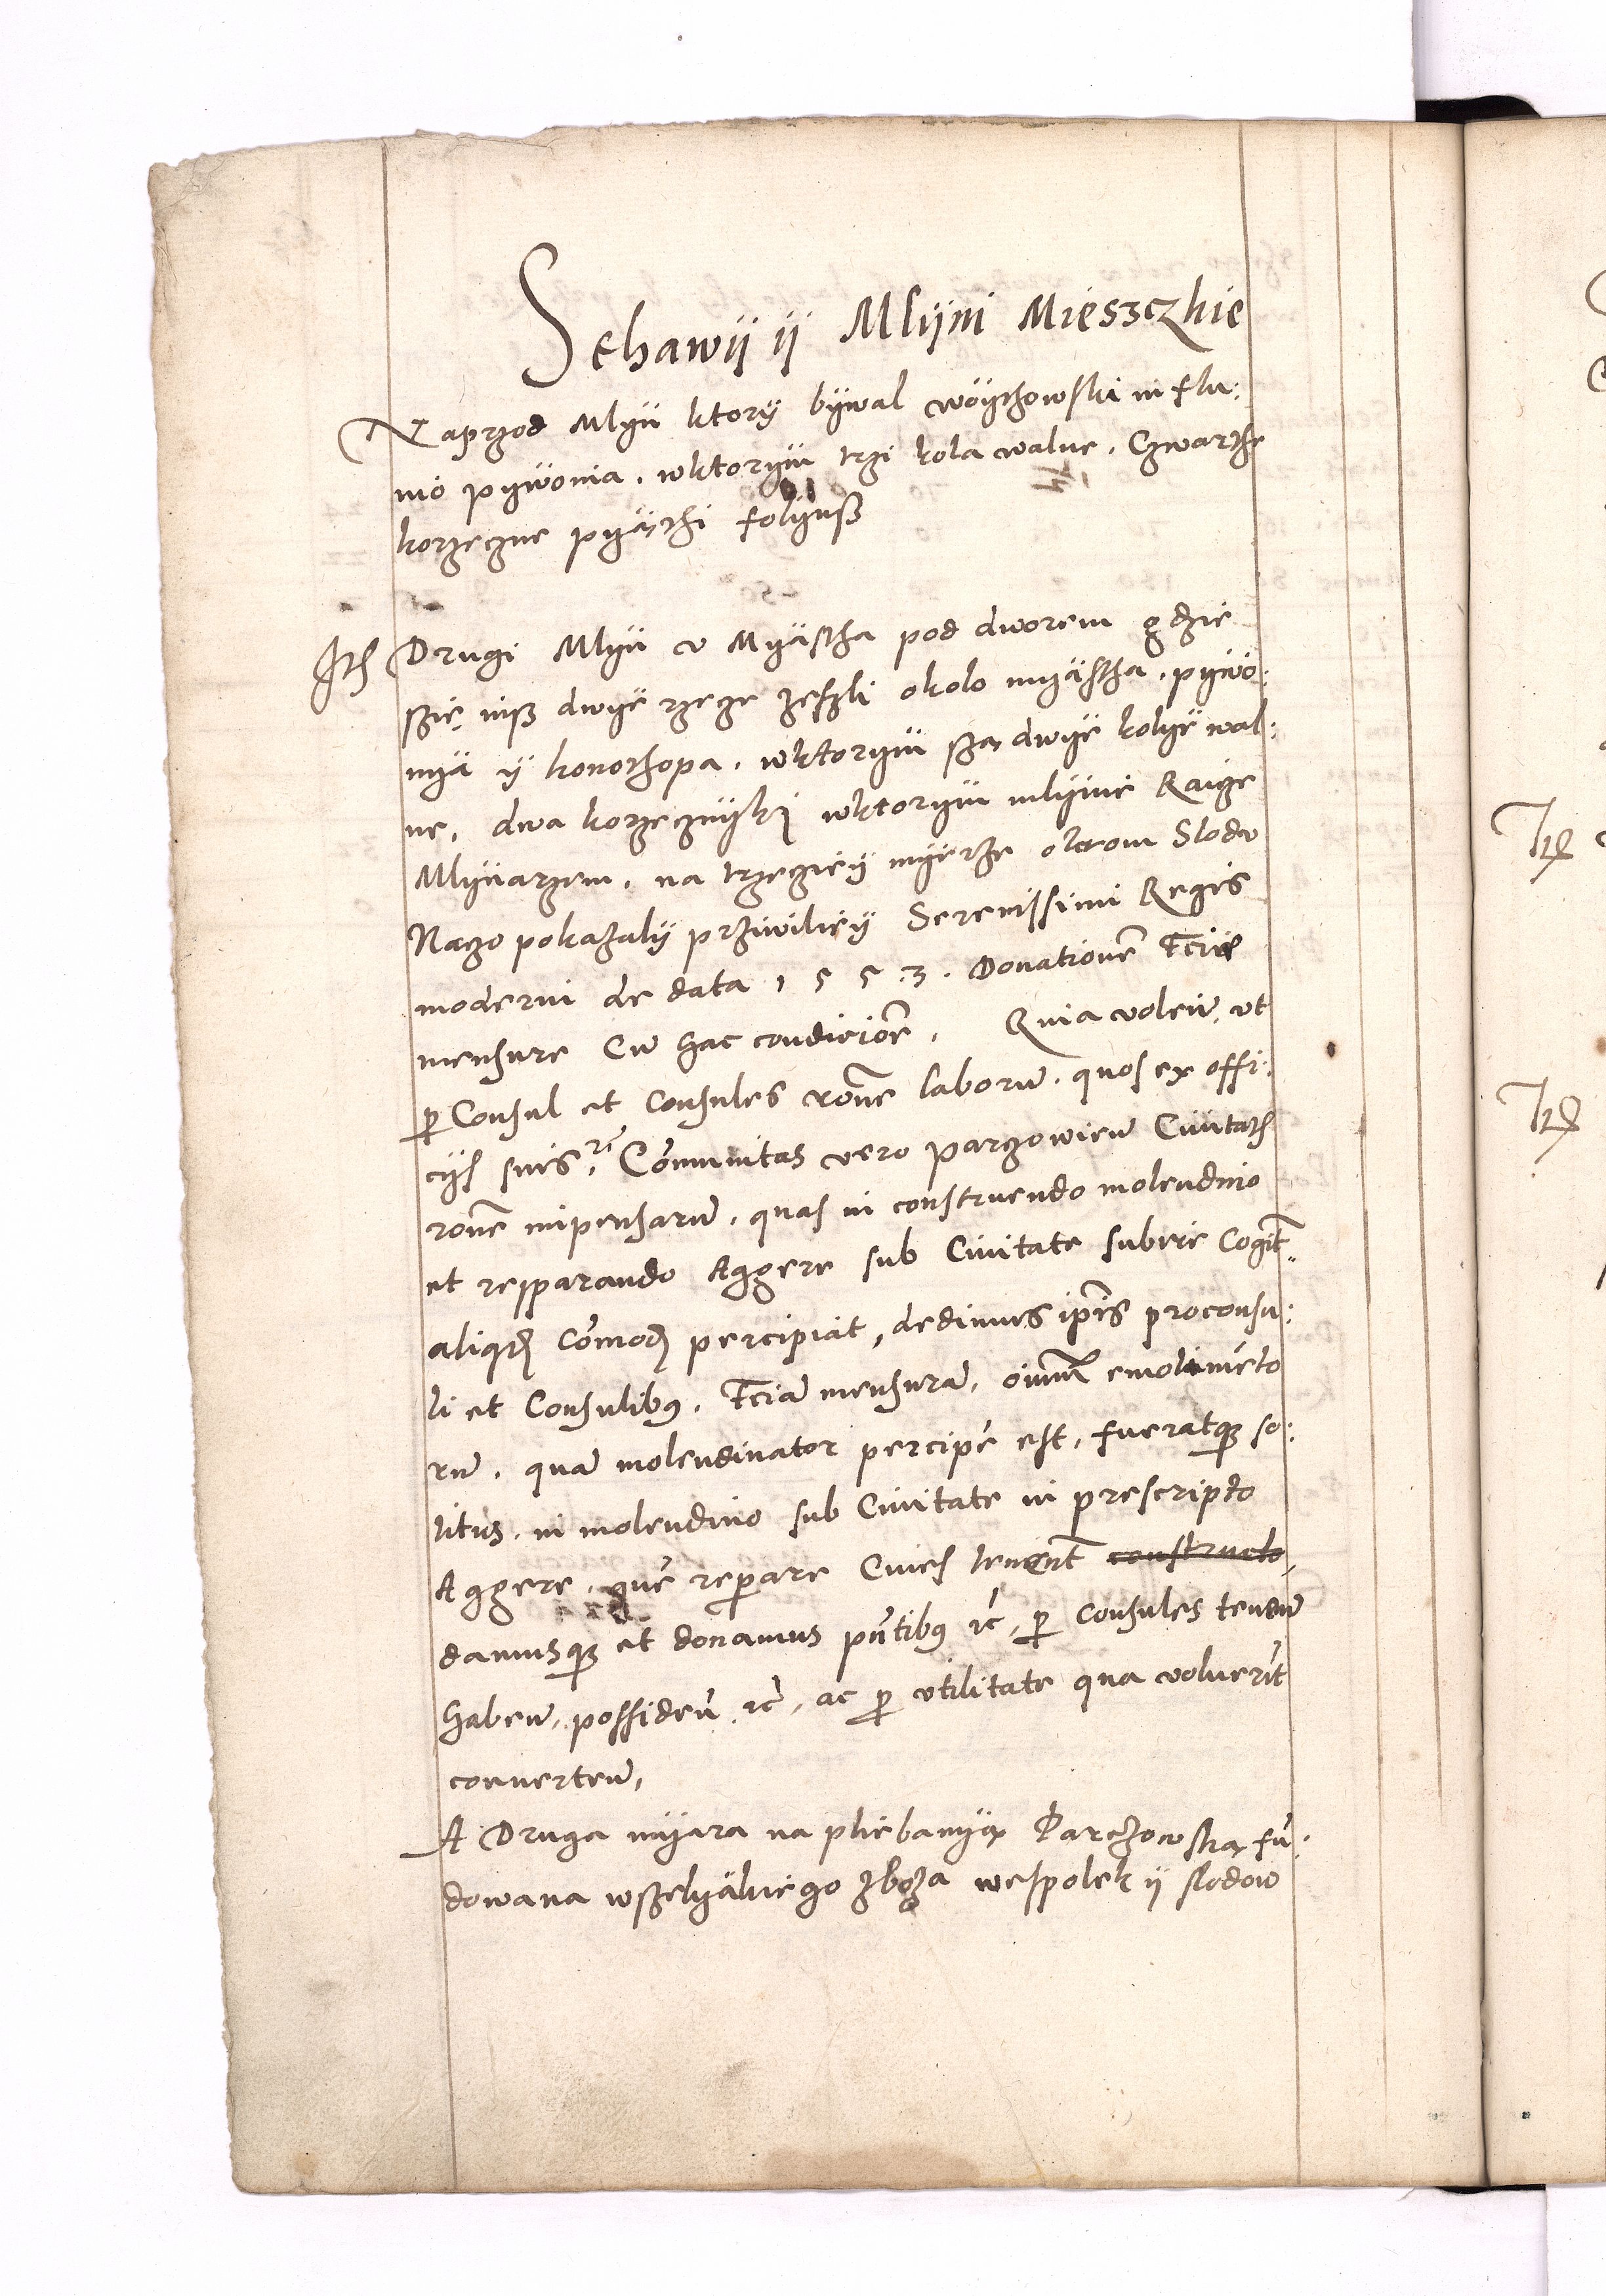 Sthawij ij Mlijni Mieszczkie
Naprzod Mlyn ktory bywal woythowski in flu:
mo pywonia. wktorym trzi kola walne. Czwarthe
korzeczne pyąthi folyuß
Ith Drugi Mlyn v Myastha pod dworem gdzie
szię niß dwye rzecze zeszli okolo myastha. pywo:
nya y konothopa. wktorym szą dwye kolye wal:
ne. dwa korzecznyki wktorym mlynie Raicze
Mlynarzem. na trzecziey myerze okrom Slodu
Naczo pokazaly prziwiliey Serenissimi Regis
moderni de data 1553. Donationem Tcie
mensure Cu hac condicioe. Quia volen. vt
p Consul et Consules rone laboru. quos ex offi:
cijs suis. Comunitas vero parczowien Ciuitatis
rone inpensaru. quas in construendo molendino
et resparando Aggere sub Ciuitate subire Cogit
aliqd Comod percipiat, dedimus ipis proconsu:
li et Consulibus. Tcia mensura. oimm emolimeto
ru. qua molendinator percipe est. fueratque so:
litus. in molendino sub Ciuitate in prescripto
Aggere. que repare Ciues tenent constructo,
damusque et donamus pntibus etc, p Consules tendu
haben. possiden etc, ac p vtilitate qua voluerit
conuerten,
A Druga myara na plebanyą Parczowską fu:
dowana wszelyakiego zboza wespolek y slodow